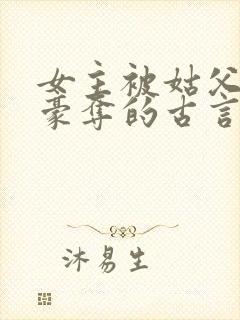 女主被姑父
豪夺的古言
沐易生